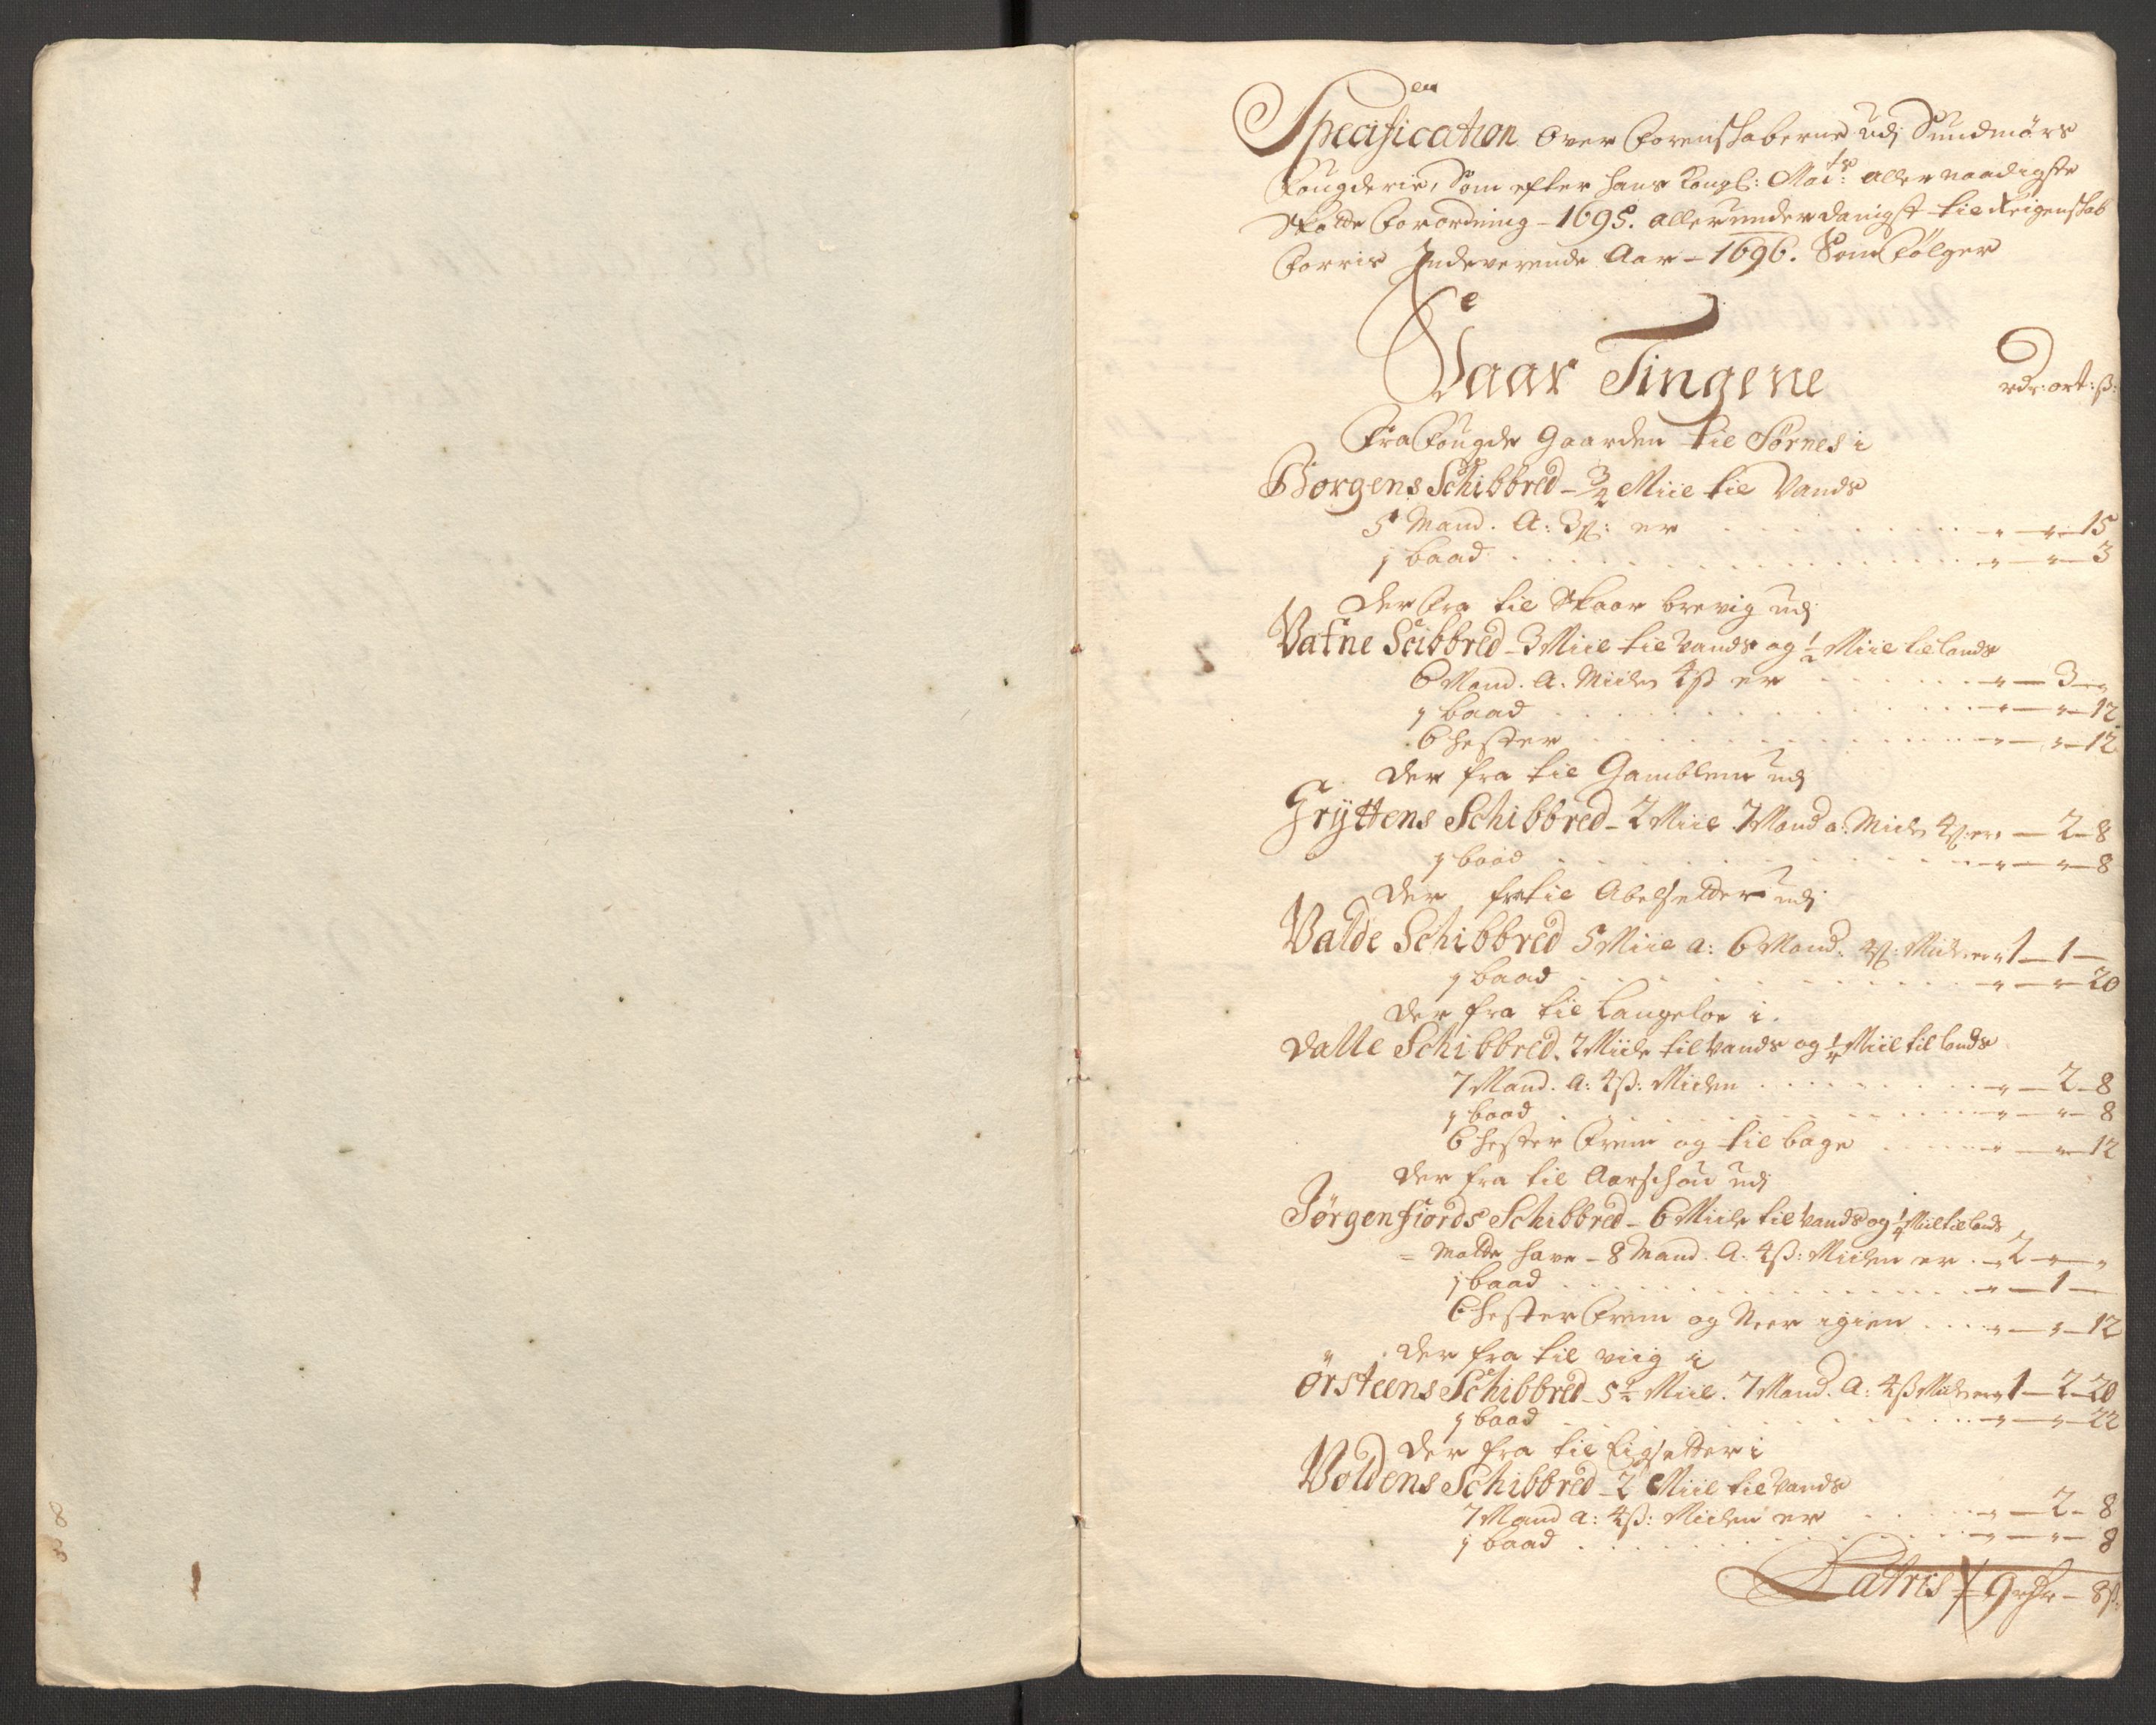 Specification over Forenskaberne udj Sundmörs
Fougderie, Som efter hans Kongl: Maits: aller naadigste
Skatte Forordning - 1695. allerunderdanigst til Reigenskab
forris Indeverende Aar - 1696. Som følger
Vaar Tingene
rdr: ort: ß:
Fra Fougde Gaarden til Sørnes i
Borgens Schibbred - 3/4 Miil til Vands
5 Mand. A: 3ß: er - " - " - 15
1 baad - " - " - 3
der fra til Skaar brevig udj
Vatne Scibbred - 3 Miil til Vands og 1/2 Miil til lands
6 Mand. A. Miilen 4ß er - " - 3 - "
1 baad - " - " - 12
6 hester - " - " - 12
der fra til Gamblem udj
Gryttens Schibbred - 2 Miil 7 Mand a: Miilen 4ß: er - 2 - 8
1 baad - " - " - 8
der fra til Abelsetter udj
Valde Schibbred 5 Miil a: 6 Mand: 4ß: Miilen er 1 - 1 -
1 baad - " - " - 20
der fra til Langeloe i
Dalle Schibbred. 2 Miile til Vands og 1/4 Miil til lands
7 Mand. A: 4ß: Miilen - " - 2 - 8
1 baad - " - " - 8
6 hester frem og tilbage - " - " - 12
der fra til Aarschou udj
Jørgenfiords Schibbred - 6 Miile til Vands og 1/4 Miil til lands
= Matte have - 8 Mand. A. 4ß: Miilen er - 2 - " - "
1 baad - " - 1 -
6 hester frem og Neer igien - " - " - 12
der fra til viig i
Ørsteens Schibbred - 5 1/2 Miil. 7 Mand. A: 4ß Miilen er 1 - 2 - 20
1 baad - " - " - 22
der fra til Eigsetter i
Voldens Schibbred - 2 Miil til Vands
7 Mand a: 4ß: Miilen er - " - 2 - 8
1 baad - " - " - 8
Latris 9 rdr - 8ß: